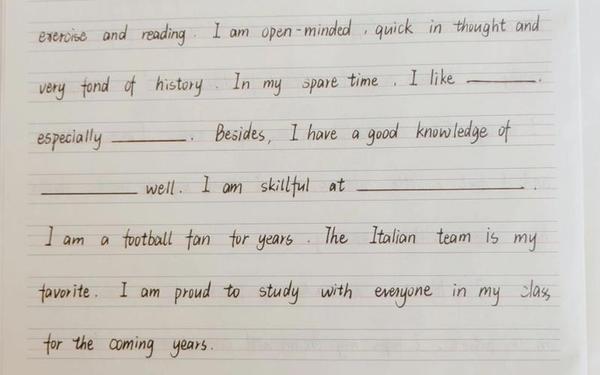 exercise and reading. I am open-minded, quick in thought and
very fond of history. In my spare time, I like ________.
especially ________. Besides, I have a good knowledge of
________ well. I am skillful at ________.
I am a football fan for years. The Italian team is my
favorite. I am proud to study with everyone in my class
for the coming years.